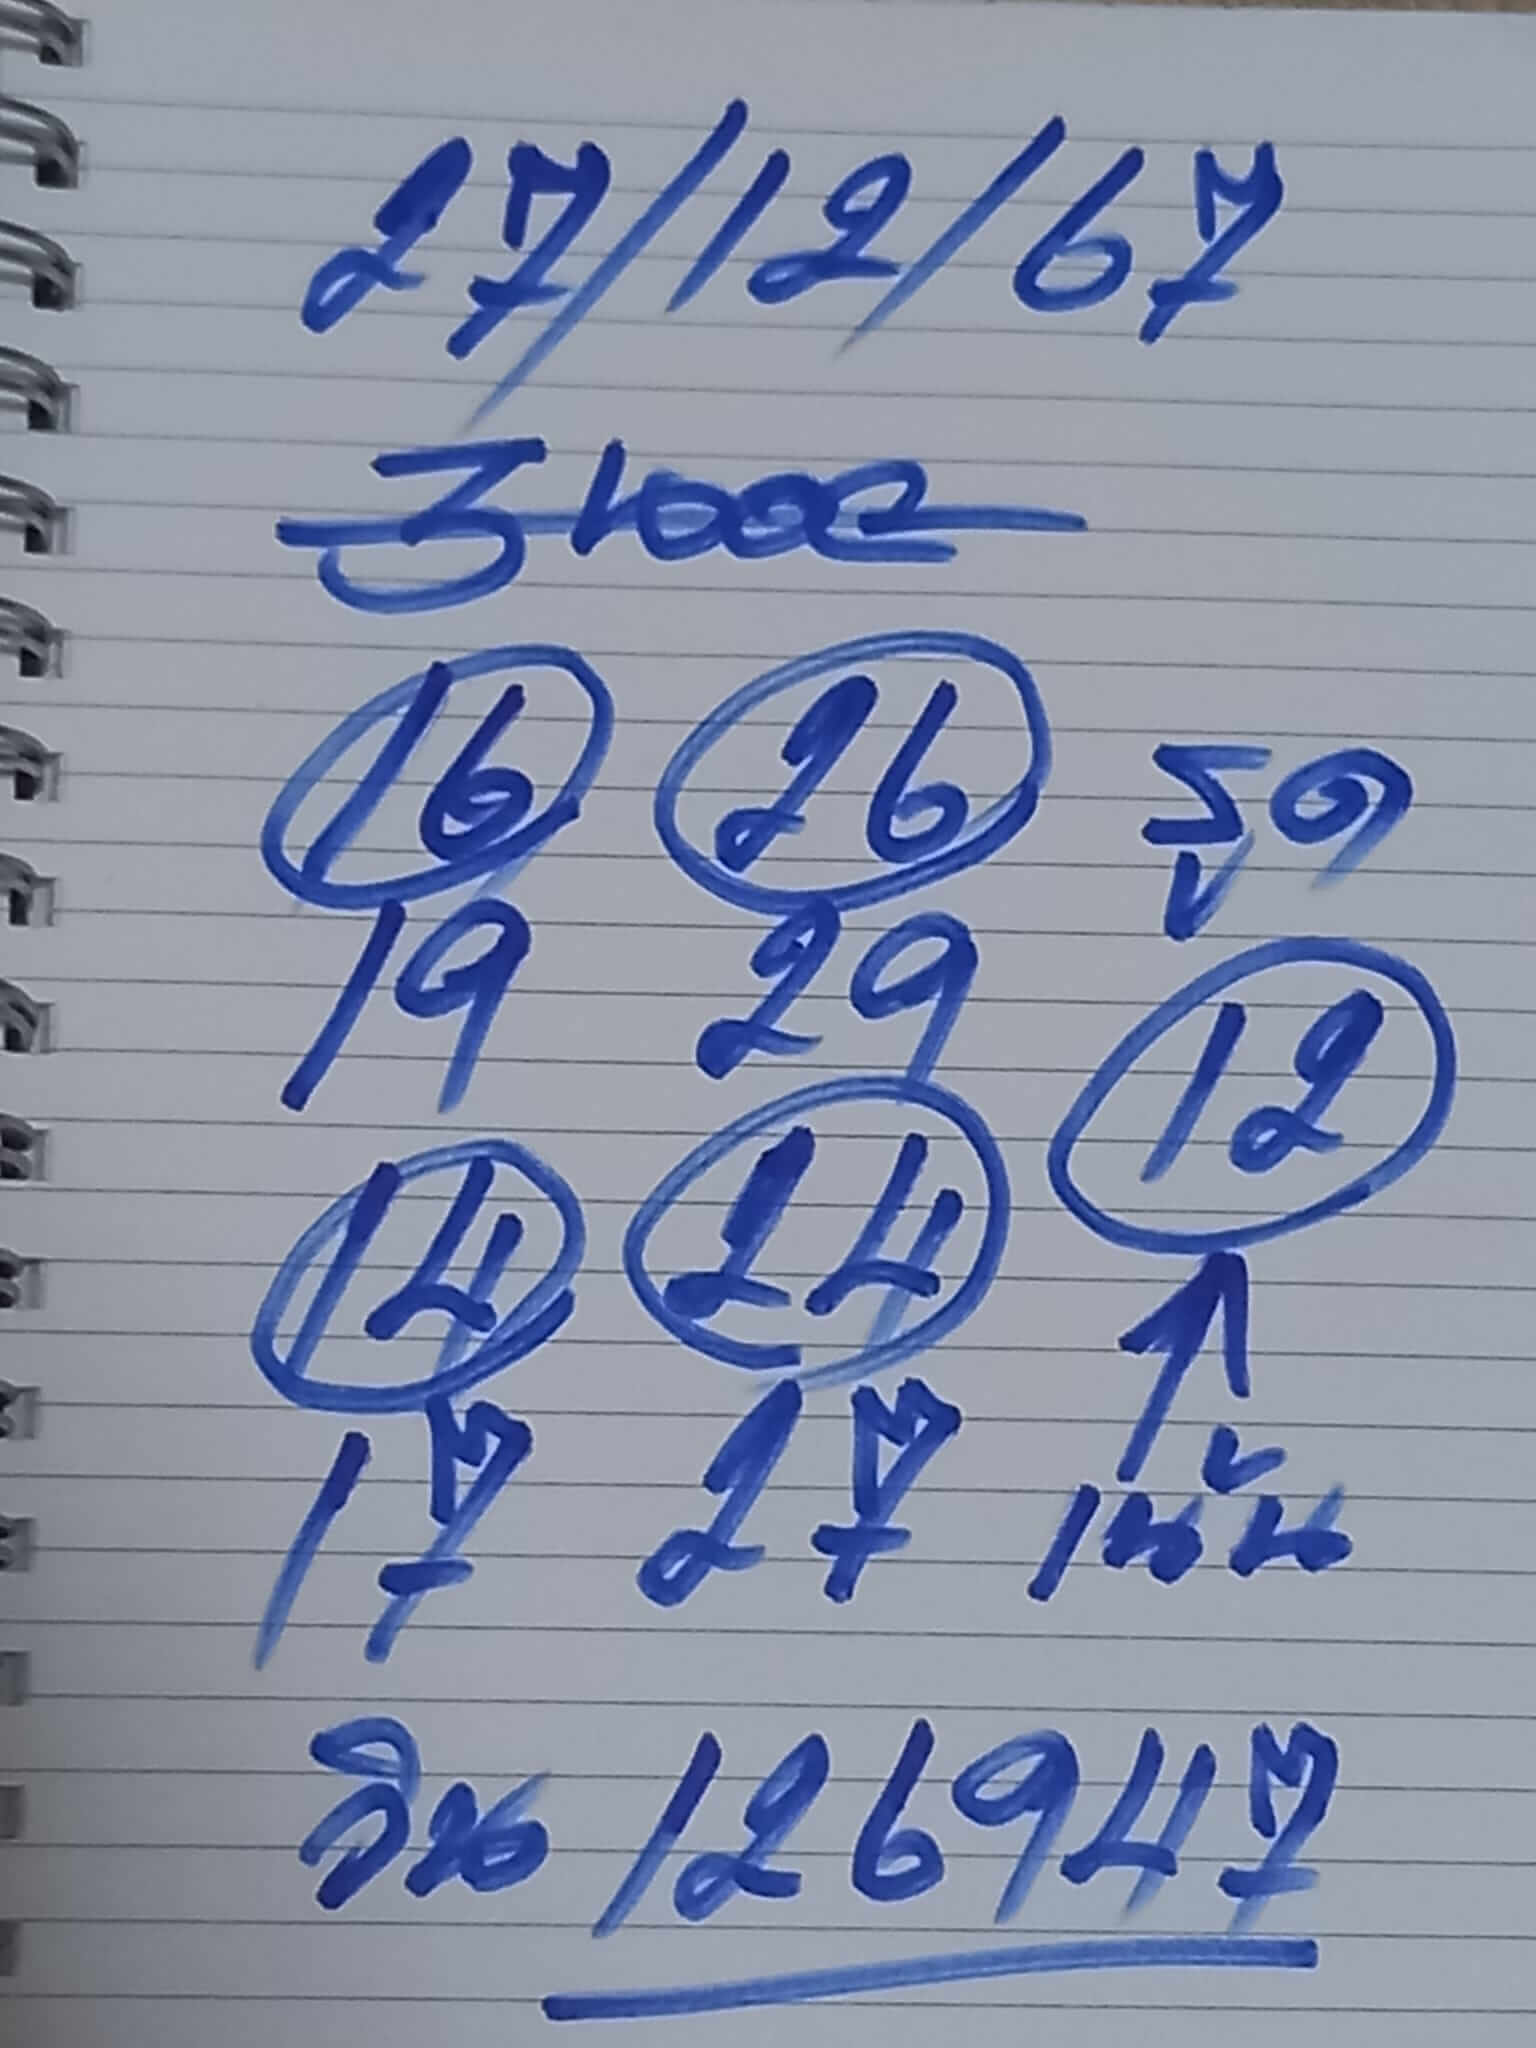 27/12/67
16 26 รูด
19 29
12
14 24
17 27 เน้น
วิน 126947